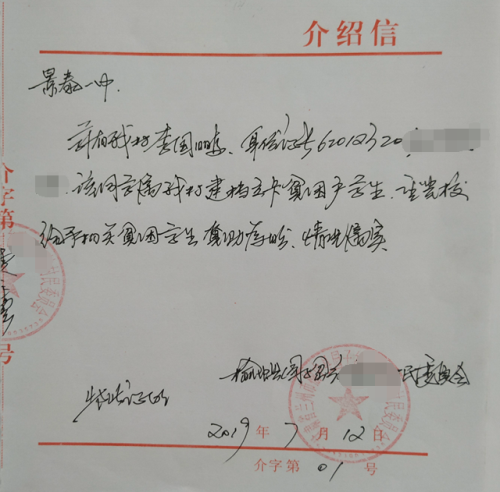 介绍信
景泰一中.
兹有我村李国 身份证号6201232
该同学属我村建档立卡贫困户学生,请贵校
给予相关贫困学生资助 情况属实
榆中县园子岔 民委员会
特此证明
2019年7月12日
介字第01号
介字第
号